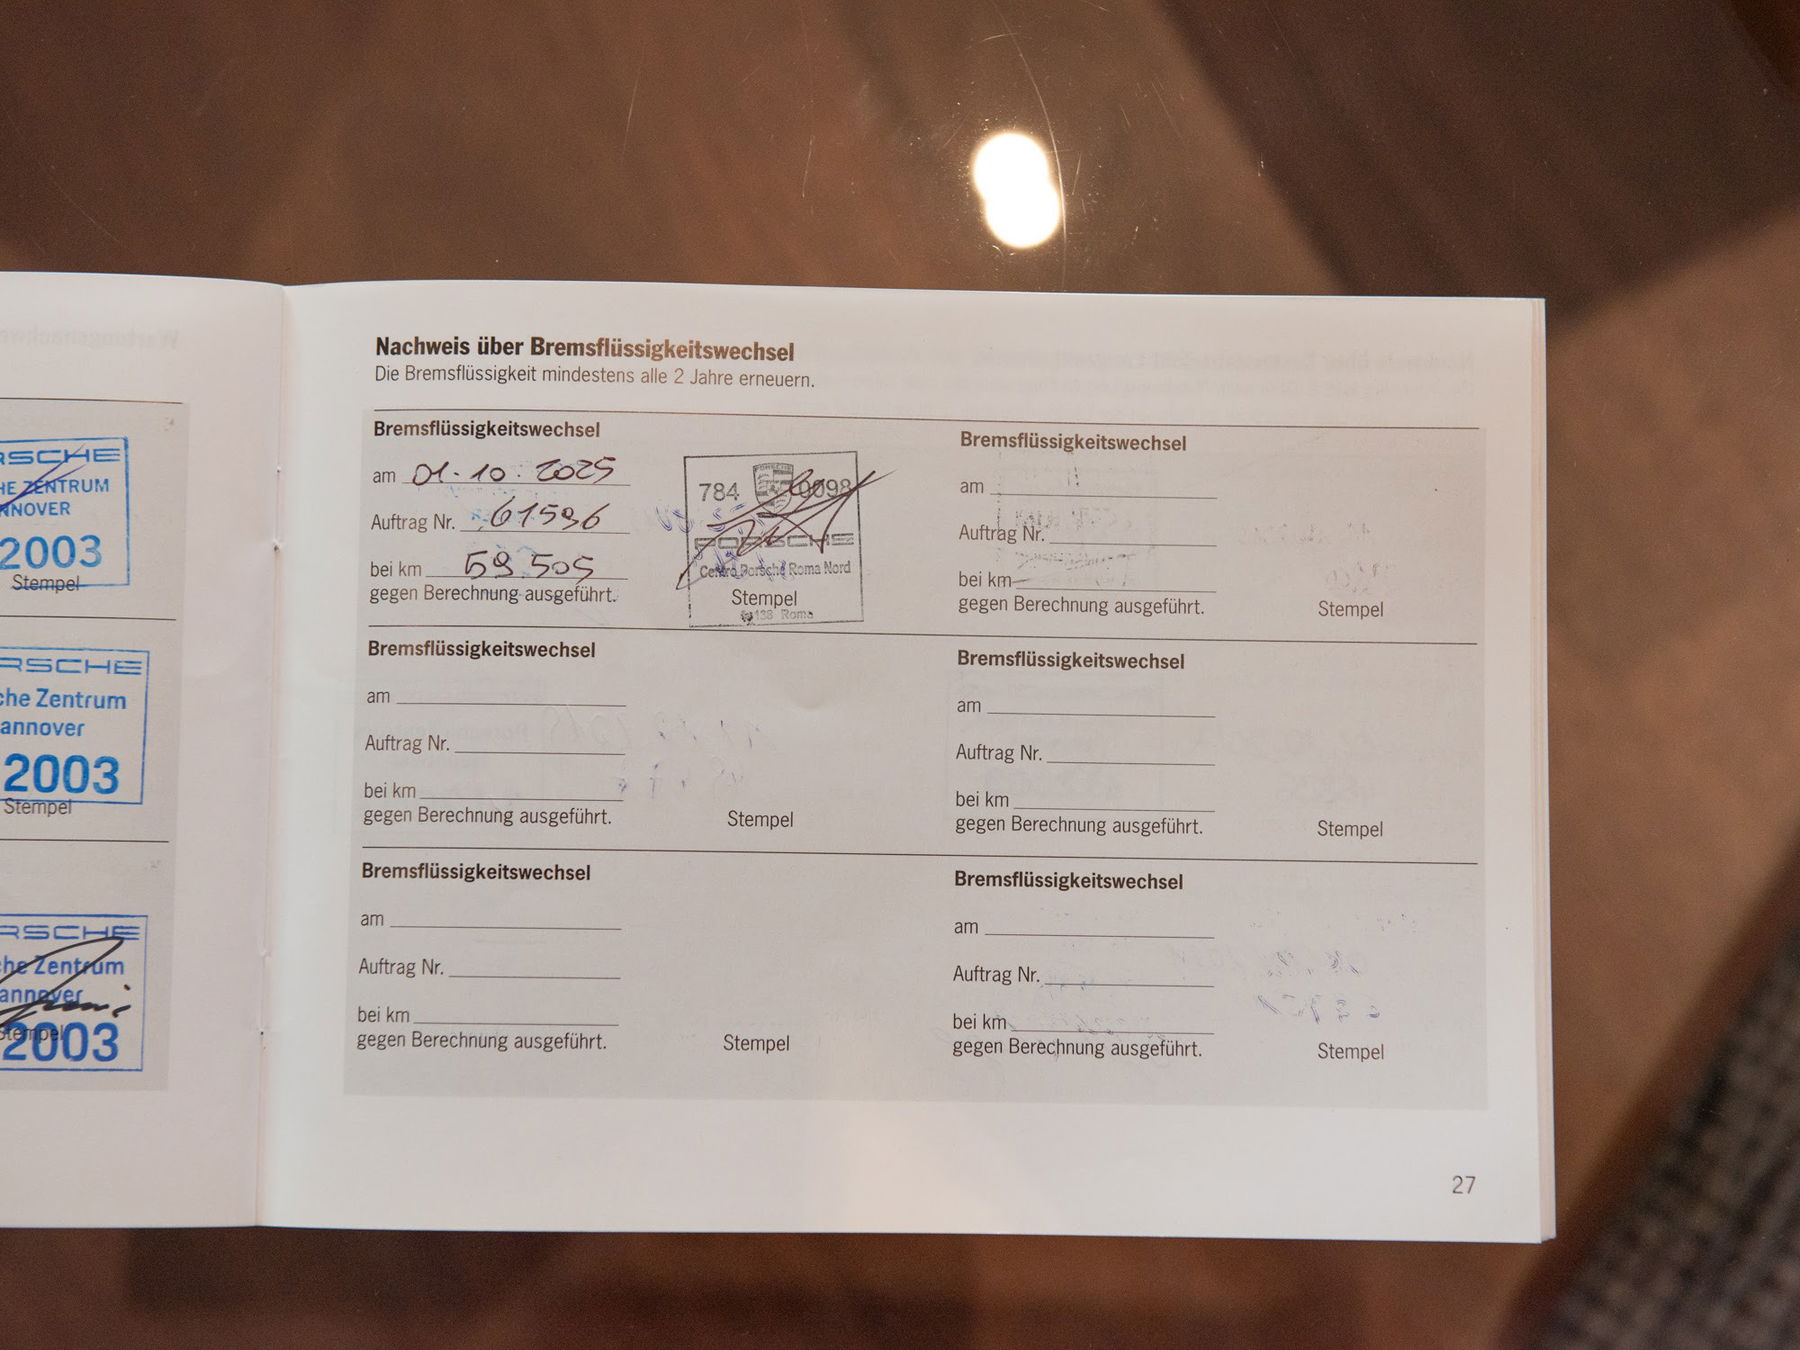 RSCHE
HE ZENTRUM
NNOVER
2003
Stempel
RSCHE
che Zentrum
annover
2003
Stempel
RSCHE
che Zentrum
annover
Stempel
2003
Nachweis über Bremsflüssigkeitswechsel
Die Bremsflüssigkeit mindestens alle 2 Jahre erneuern.
Bremsflüssigkeitswechsel
am 01.10.2025
Auftrag Nr. 61596
bei km 59.505
gegen Berechnung ausgeführt.
784 0098
PORSCHE
Centro Porsche Roma Nord
Stempel
138 Roma
Bremsflüssigkeitswechsel
am
Auftrag Nr.
bei km
gegen Berechnung ausgeführt.
Stempel
Bremsflüssigkeitswechsel
am
Auftrag Nr.
bei km
gegen Berechnung ausgeführt.
Stempel
Bremsflüssigkeitswechsel
am
Auftrag Nr.
bei km
gegen Berechnung ausgeführt.
Stempel
Bremsflüssigkeitswechsel
am
Auftrag Nr.
bei km
gegen Berechnung ausgeführt.
Stempel
Bremsflüssigkeitswechsel
am
Auftrag Nr.
bei km
gegen Berechnung ausgeführt.
Stempel
27